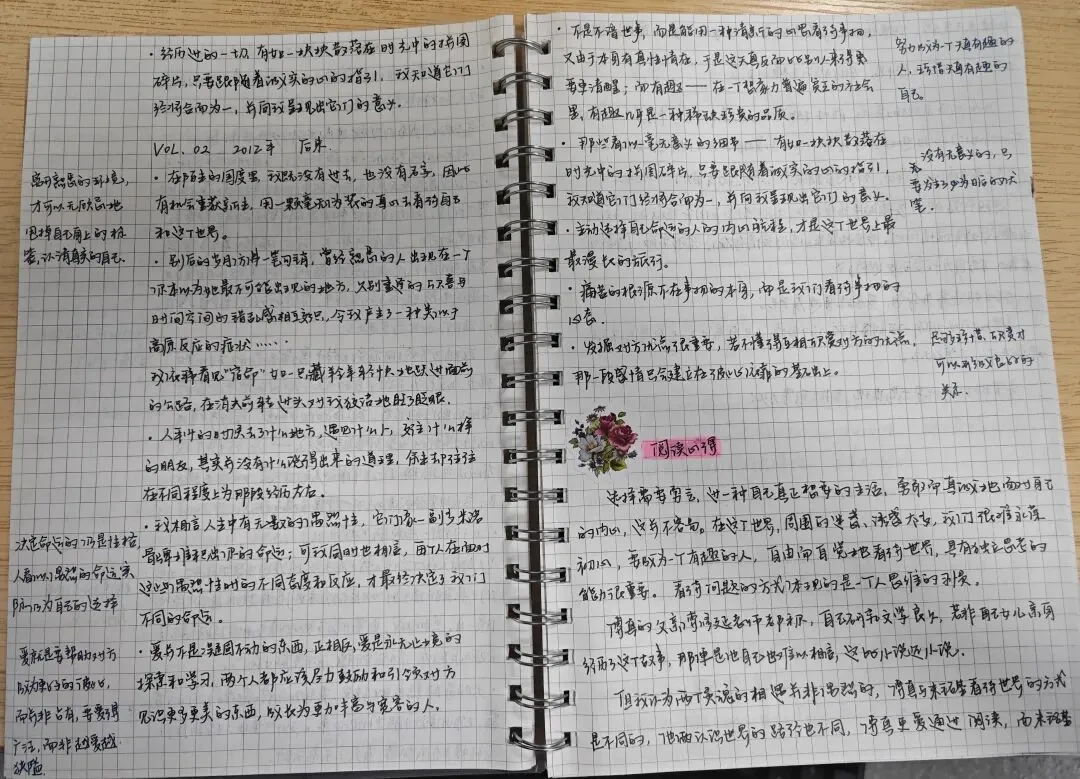 ·经历过的一切,有如一块块散落在时光中的拼图
碎片,只要跟随着诚实的心的指引,我知道它们
终将合而为一,并向我呈现出它们的意义。
VOL.02 2012年 后来
·在陌生的国度里,我既没有过去,也没有名字,因此
有机会重获自由,用一颗毫无伪装的真心去看待自己
和这个世界。
·别后的岁月方才一笔勾销,曾经熟悉的人出现在一个
你本以为她最不可能出现的地方,久别重逢的与喜与
时间空间的错乱感相互交织,令我产生了一种类似于
高原反应的症状……
我依稀看见“宿命”如一只藏羚羊
的公路,在消失前转过头对我狡诘地眨了眨眼。
·人年少的时候去了什么地方,遇见什么人,交上什么样
的朋友,其实并没有什么说得出来的道理,你去却往往
在不同程度上为那段经历左右。
·我相信人生中有无数的偶然性,它们像一副多米诺
骨牌堆积出你的命运;可我同时也相信,每个人在面对
这些偶然性时的不同态度和反应,才最终决定了我们
不同的命运。
·爱并不是凝固不动的东西,正相反,爱是永无止境的
探索和学习,两个人都应该尽力鼓励和引领对方
见识更多更美的东西,成长为更加丰富与宽容的人。
离开熟悉的环境,
才可以无所忌地
思择自己身上的标
签,认清真实的自己。
决定命运的乃是性格,
人看似偶然的命运实
际乃为自己的选择
爱就是要帮助对方
成为更好的
而并非占有,要爱得
广泛,而非越爱越
狭隘
·不是不谙世事,而是能用一种清新的心思看待事物,
又由于本身有真性情在,于是这天真反而比别人来得更
要更清醒;而有趣——在一个想象力普遍贫乏的社会
里,有趣几乎是一种稀缺珍贵的品质。
·那些看似毫无意义的细节——有如一块块散落在
时光中的拼图碎片,只要跟随着诚实的心的指引,
我知道它们终将合而为一,并向我呈现出它们的意义。
·主动选择自己命运的人的内心旅程,才是这个世上最
最漫长的旅行。
·痛苦的根源不在事物的本身,而是我们看待事物的
心态。
·发掘对方优点很重要,若不懂得互相欣赏对方的优点,
那一段感情只会建立在了彼此依靠的基础上。
努力成为一个天真有趣的
人,珍惜天真有趣的
自己
没有无意义的,只
是要为了多为日后的伏
笔。
欣赏对
可以形成良好的
关系
阅读心得
选择需要勇气,过一种自己真正想要的生活,勇敢而真诚地面对自己
的内心,这并不容易。在这个世界,周围的噪音、诱惑太多,我们很难永葆
初心,要成为一个有趣的人,自由而自觉地看待世界,具有独立思考的
能力很重要。看待问题的方式体现的是一个人思维的
傅真的父亲傅修延老师都称,自己研究文学良久,若非自己女儿亲身
经历了这个故事,那便是他自己也难以相信,这比小说还小说。
但我认为两个灵魂的相遇并非偶然的,傅真与来福看待世界的方式
是不同的,他俩认识世界的路径也不同,傅真更爱通过阅读,而来福